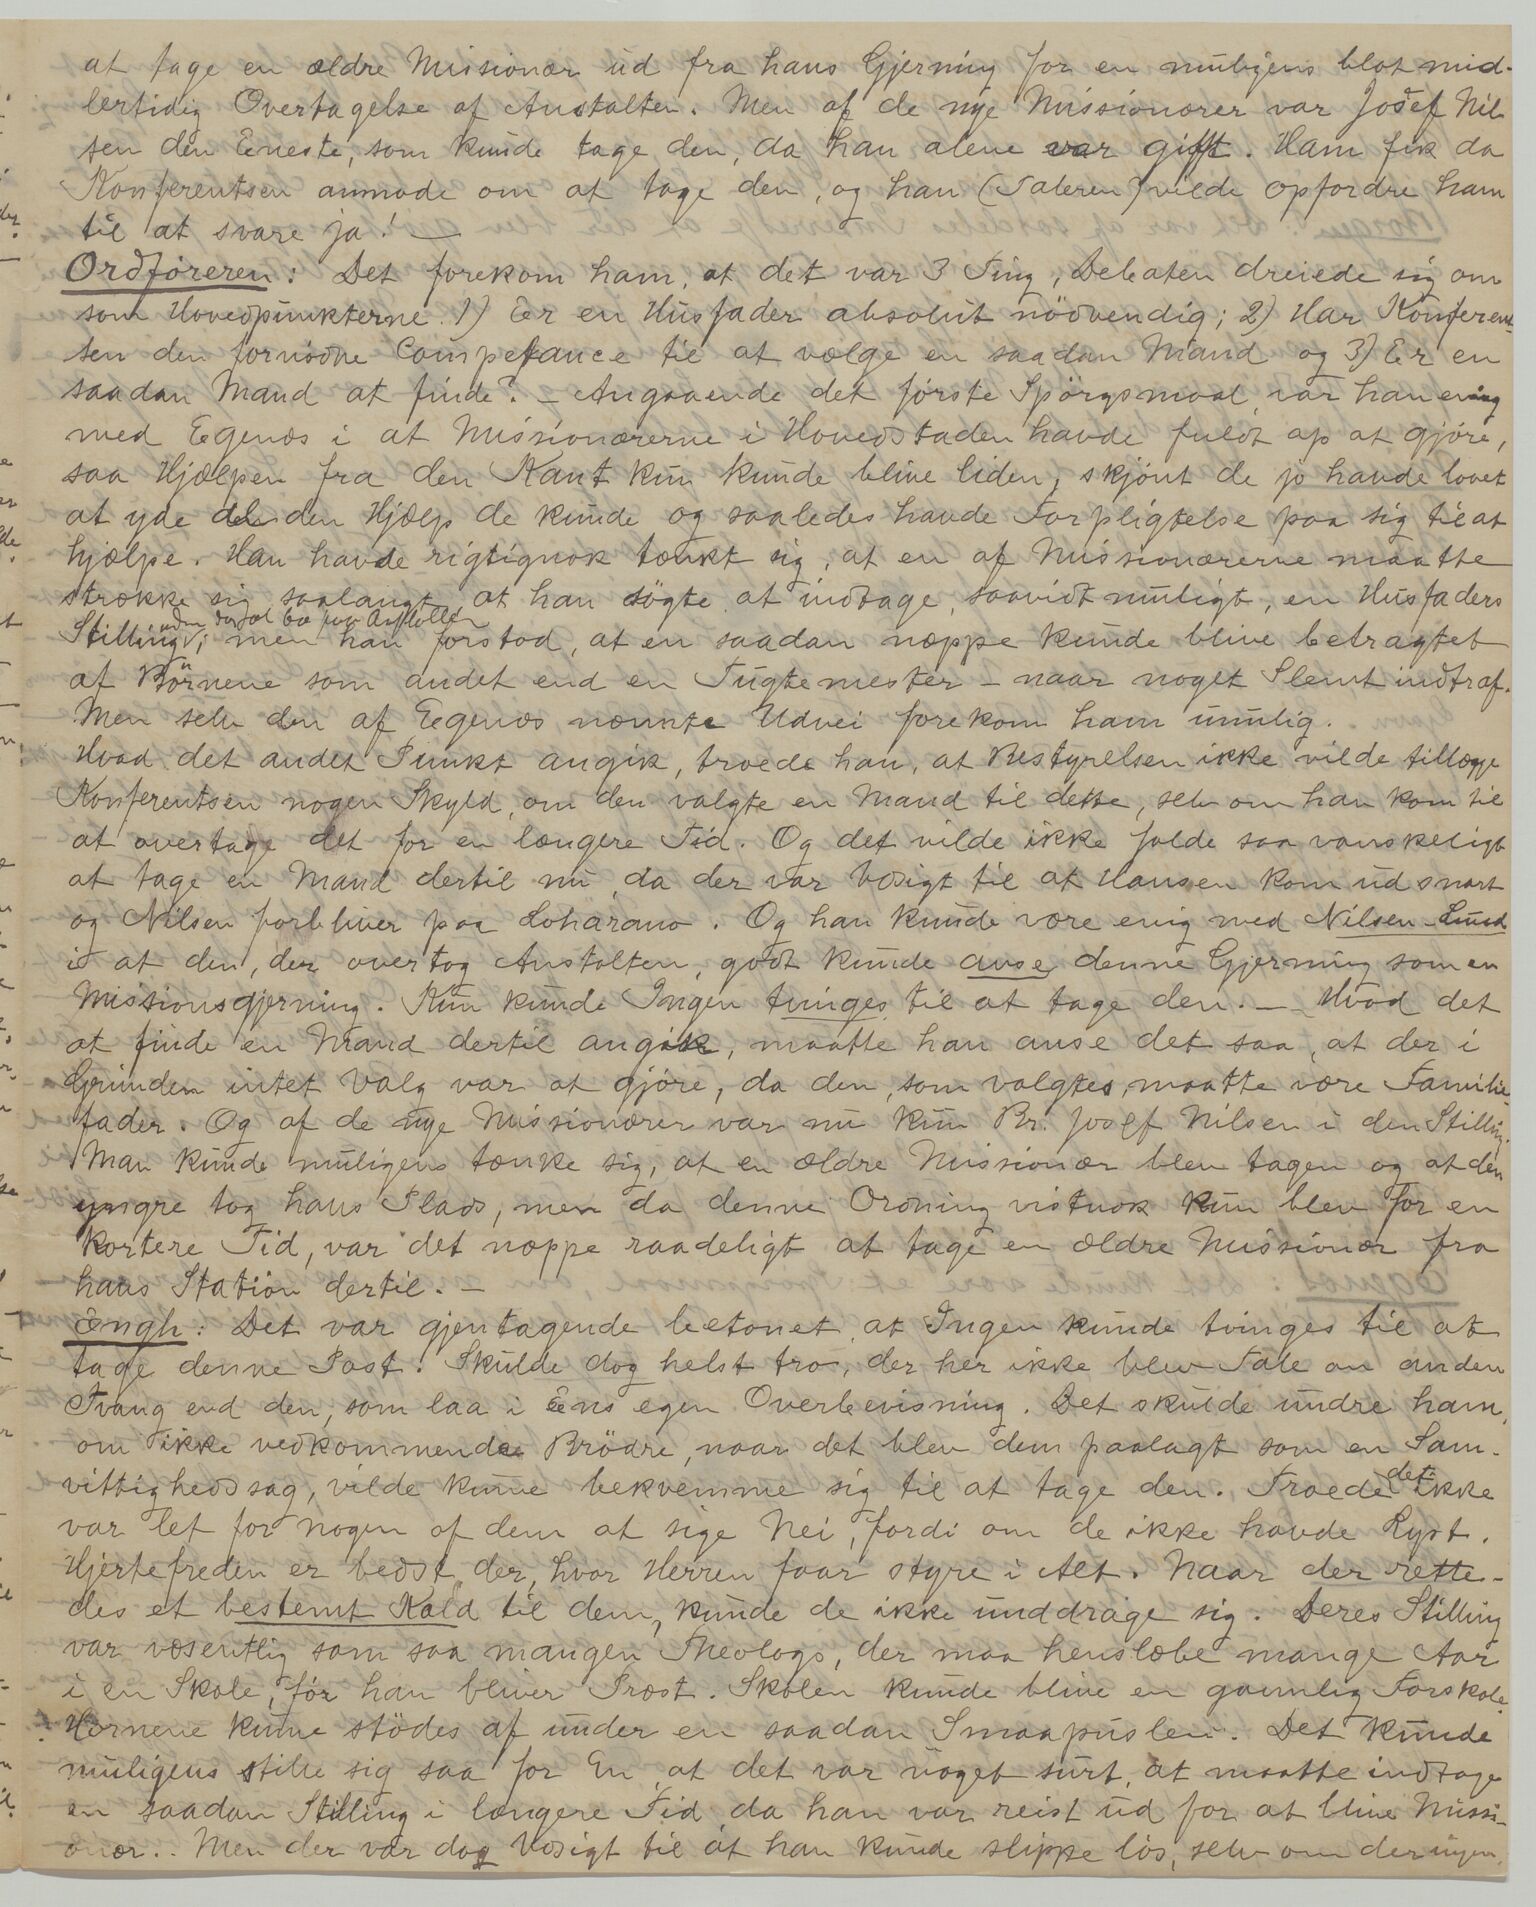 at tage en ældre Missionær ud fra hans Gjerning for en muligens blot mid-
lertidig Overtagelse af Anstalten. Men af de nye Missionærer var Josef Nil-
sen den Eneste, som kunde tage den, da han alene var gift. Ham fik da
Konferentsen anmode om at tage den, og han (Taleren) vilde opfordre ham
til at svare ja! —
Ordføreren: Det forekom ham, at det var 3 Ting, Debaten dreiede sig om
som Hovedpunkterne. 1) Er en Husfader absolut nödvendig; 2) Har Konferent-
sen den fornødne Competance til at vælge en saadan Mand og 3) Er en
saadan Mand at finde? — Angaaende det første Spörgsmaal var han enig
med Egenæs i at Missionærerne i Hovedstaden havde fuldt op at gjøre,
saa Hjælpen fra den Kant kun kunde blive liden, skjönt de jo havde lovet
at yde den Hjælp de kunde og saaledes havde Forpligtelse paa sig til at
hjælpe. Han havde rigtignok tænkt sig, at en af Missionærerne maatte
strække sig saalangt, at han sögte at indtage, saavidt muligt, en Husfaders
uden derfor at bo paa Anstalten
Stilling; men han forstod, at en saadan næppe kunde blive betragtet
af Börnene som andet end en Tugtemester — naar noget Slemt indtraf.
Men selv den af Egenæs nævnte Udvei forekom ham umulig.
Hvad det andet Punkt angik, troede han, at Bestyrelsen ikke vilde tillægge
Konferentsen nogen Skyld, om den valgte en Mand til dette, selv om han kom til
at overtage det for en længere Tid. Og det vilde ikke falde saa vanskeligt
at tage en Mand dertil nu, da der var Udsigt til at Hansen kom ud snart
og Nilsen forbliver paa Loharano. Og han kunde være enig med Nilsen-Lund
i at den, der overtog Anstalten, godt kunde anse denne Gjerning som en
Missionsgjerning. Kun kunde Ingen tvinges til at tage den. — Hvad det
at finde en Mand dertil angik, maatte han anse det saa, at der i
Grunden intet Valg var at gjøre, da den, som valgtes, maatte være Familie-
fader. Og af de nye Missionærer var nu kun Br. Josef Nilsen i den Stilling.
Man kunde muligens tænke sig, at en ældre Missionær blev tagen og at den
yngre tog hans Plads, men da denne Ordning vistnok kun blev for en
kortere Tid, var det næppe raadeligt at tage en ældre Missionær fra
hans Station dertil. —
Engh: Det var gjentagende betonet, at Ingen kunde tvinges til at
tage denne Post. Skulde dog helst tro, der her ikke blev Tale om anden
Tvang end den, som laa i Ens egen Overbevisning. Det skulde undre ham,
om ikke vedkommende Brödre, naar det blev dem paalagt som en Sam-
vittighedssag, vilde kunne bekvemme sig til at tage den. Troede det ikke
var let for nogen af dem at sige Nei, fordi om de ikke havde Lyst.
Hjertefreden er bedst der, hvor Herren faar styre i Alt. Naar der rette-
des et bestemt Kald til dem, kunde de ikke unddrage sig. Deres Stilling
var væsentlig som saa mangen Theologs, der maa henslæbe mange Aar
i en Skole, för han bliver Præst. Skolen kunde blive en gavnlig Forskole.
Hornene kunne stödes af under en saadan Smaapuslen. Det kunde
muligens stille sig saa for En, at det var noget surt, at maatte indtage
en saadan Stilling i længere Tid, da han var reist ud for at blive Missi-
onær.. Men der var dog Udsigt til at han kunde slippe lös, selv om der ingen